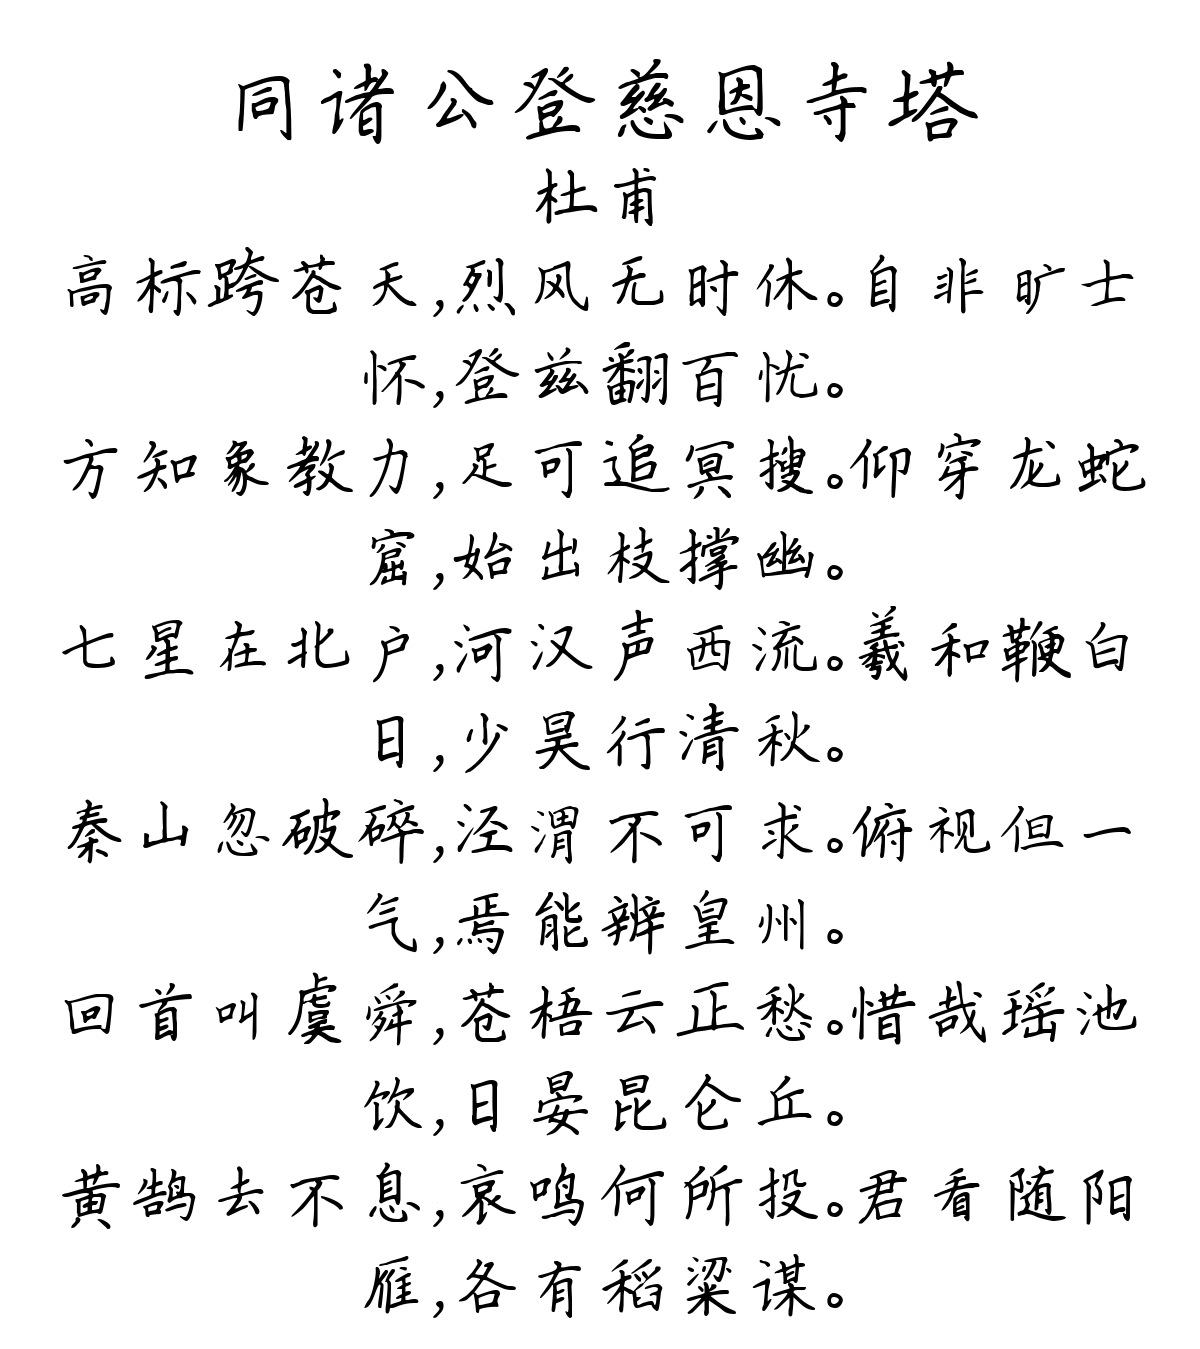 同诸公登慈恩寺塔
杜甫
高标跨苍天,烈风无时休。自非旷士
怀,登兹翻百忧。
方知象教力,足可追冥搜。仰穿龙蛇
窟,始出枝撑幽。
七星在北户,河汉声西流。羲和鞭白
日,少昊行清秋。
秦山忽破碎,泾渭不可求。俯视但一
气,焉能辨皇州。
回首叫虞舜,苍梧云正愁。惜哉瑶池
饮,日晏昆仑丘。
黄鹄去不息,哀鸣何所投。君看随阳
雁,各有稻粱谋。